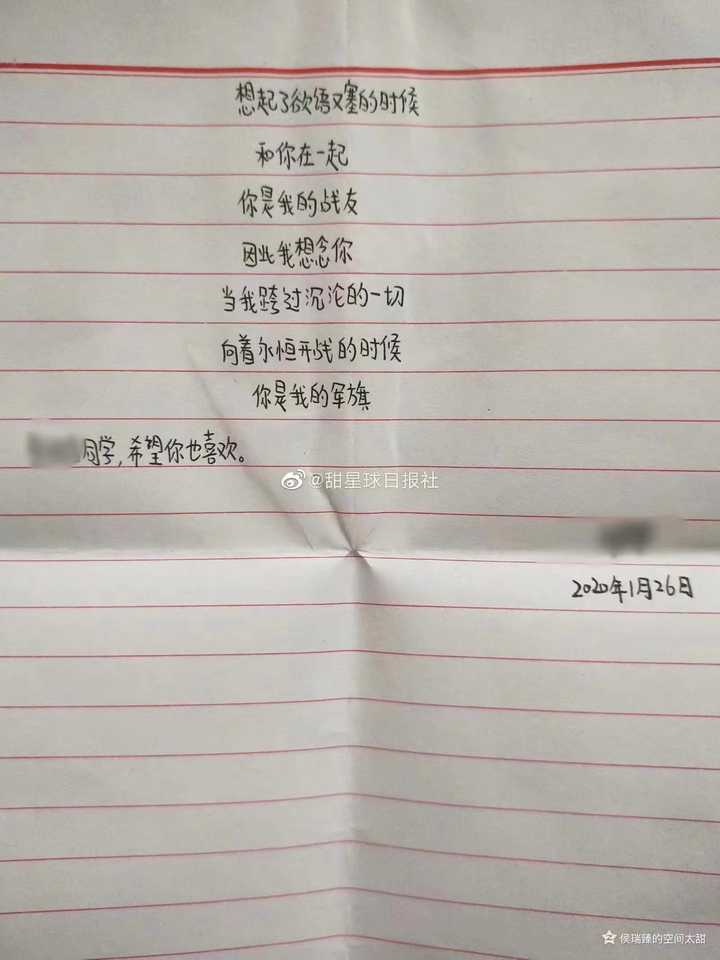 想起了欲语又塞的时候
和你在一起
你是我的战友
因此我想念你
当我跨过沉沦的一切
向着永恒开战的时候
你是我的军旗
同学,希望你也喜欢。
@甜星球日报社
2020年1月26日
侯瑞臻的空间太甜